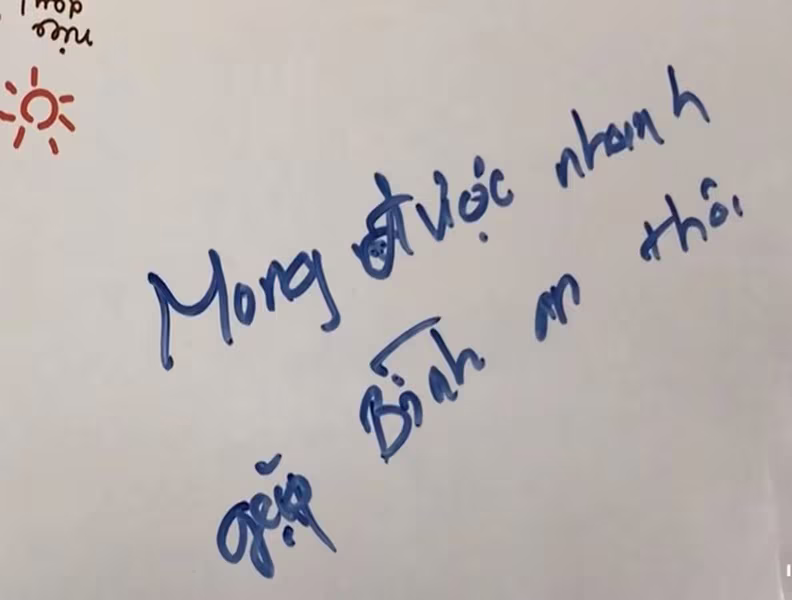 nice
day!
Mong được nhanh
gặp Bình an thôi